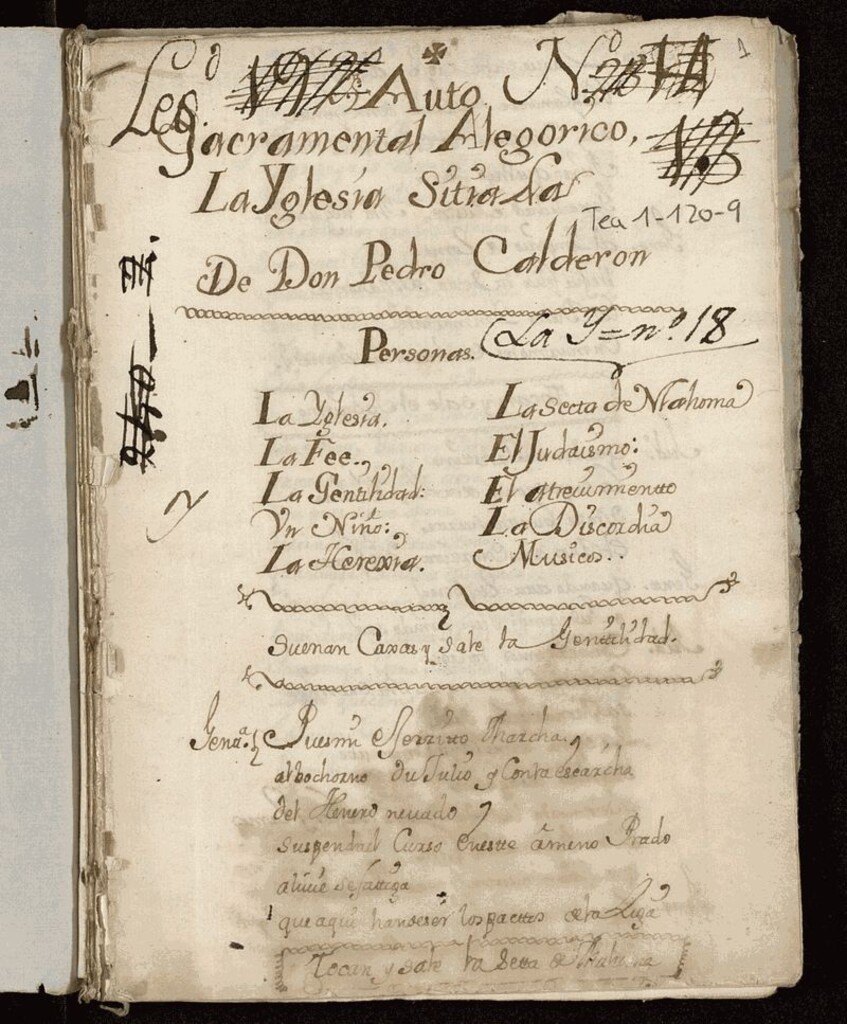 Leg.º Auto Nº
1
Sacramental Alegorico,
La Yglesia Sitiada
Tea 1-120-9
De Don Pedro Calderon
Personas. La Y=nº. 18
La Yglesia. La Secta de Mahoma
La Fee. El Judaismo:
La Gentilidad: El atrevimiento
Un Niño: La Discordia
La Herexia. Musicos.
Suenan Caxas y sale la Gentilidad.
Gen.ª Pues mi exercito Marcha
al bochorno du Julio y Conta escarcha
del Henero nevado
suspenda el Curso eneste ameno Prado
alivie sefatiga
que aqui han de ser los pactos de la Liga
Tocan y sale la Secta de Mahoma